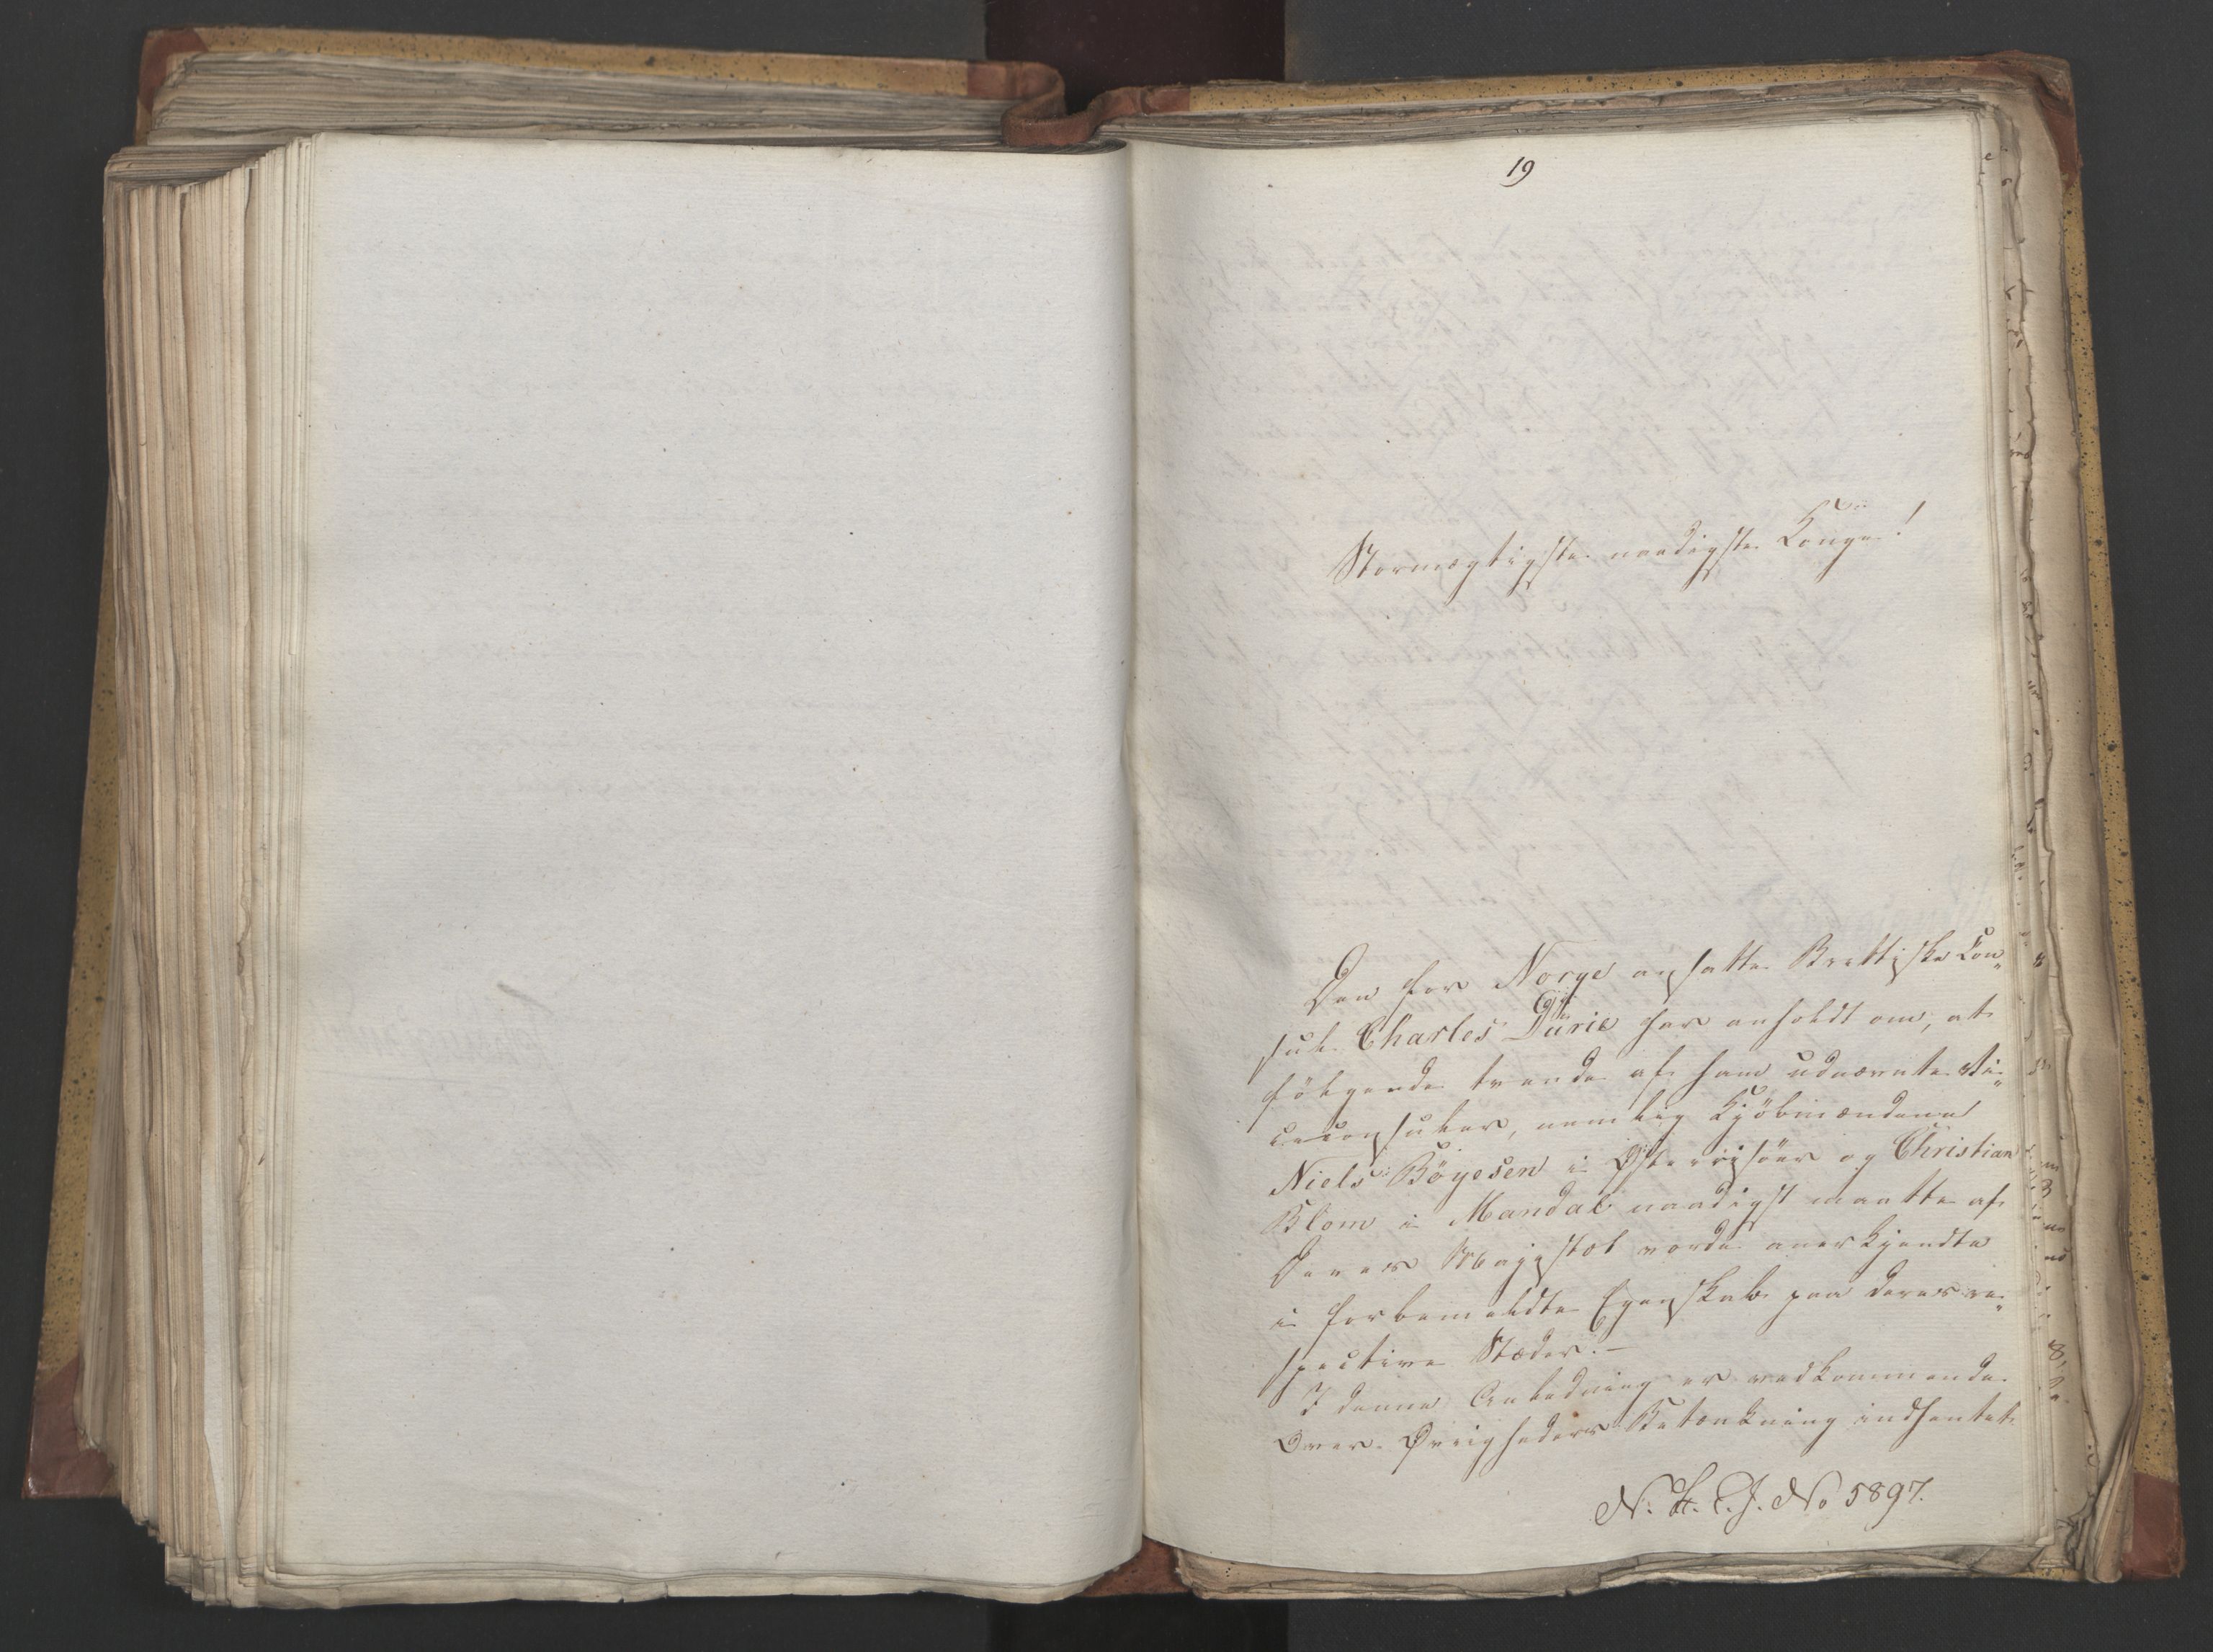 19
Stormægtigste naadigste Konge!
Den for Norge ansatte Brittiske Con„
sul Charles Dürie har anholdt om, at
følgende tvende af ham udnævnte Vi„
ceconsuler, nemlig Kjöbmændene
Niels Böyesen i Østerrisöer og Christian
Blom i Mandal naadigst maatte af
Deres Majestæt vorde anerkjendte
i forbemeldte Egenskab paa deres re„
spective Stæder.—
I denne Anledning er vedkommende
Over-Øvrigheders Betænkning indhentet
N. H. C. J. No 5897.